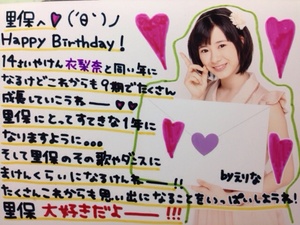 里保へ♥(´θ`)ノ
Happy Birthday!
14さいやけん衣梨奈と同い年に
なるけどこれからも9期でたくさん
成長していこうねー♥♥
里保にとってすてきな1年に
なりますように...
そして里保のその歌やダンスに
まけんくらいになるけんねー!!
たくさんこれからも思い出になることをいっぱいしようね!
里保 大好きだよー!!!
byえりな